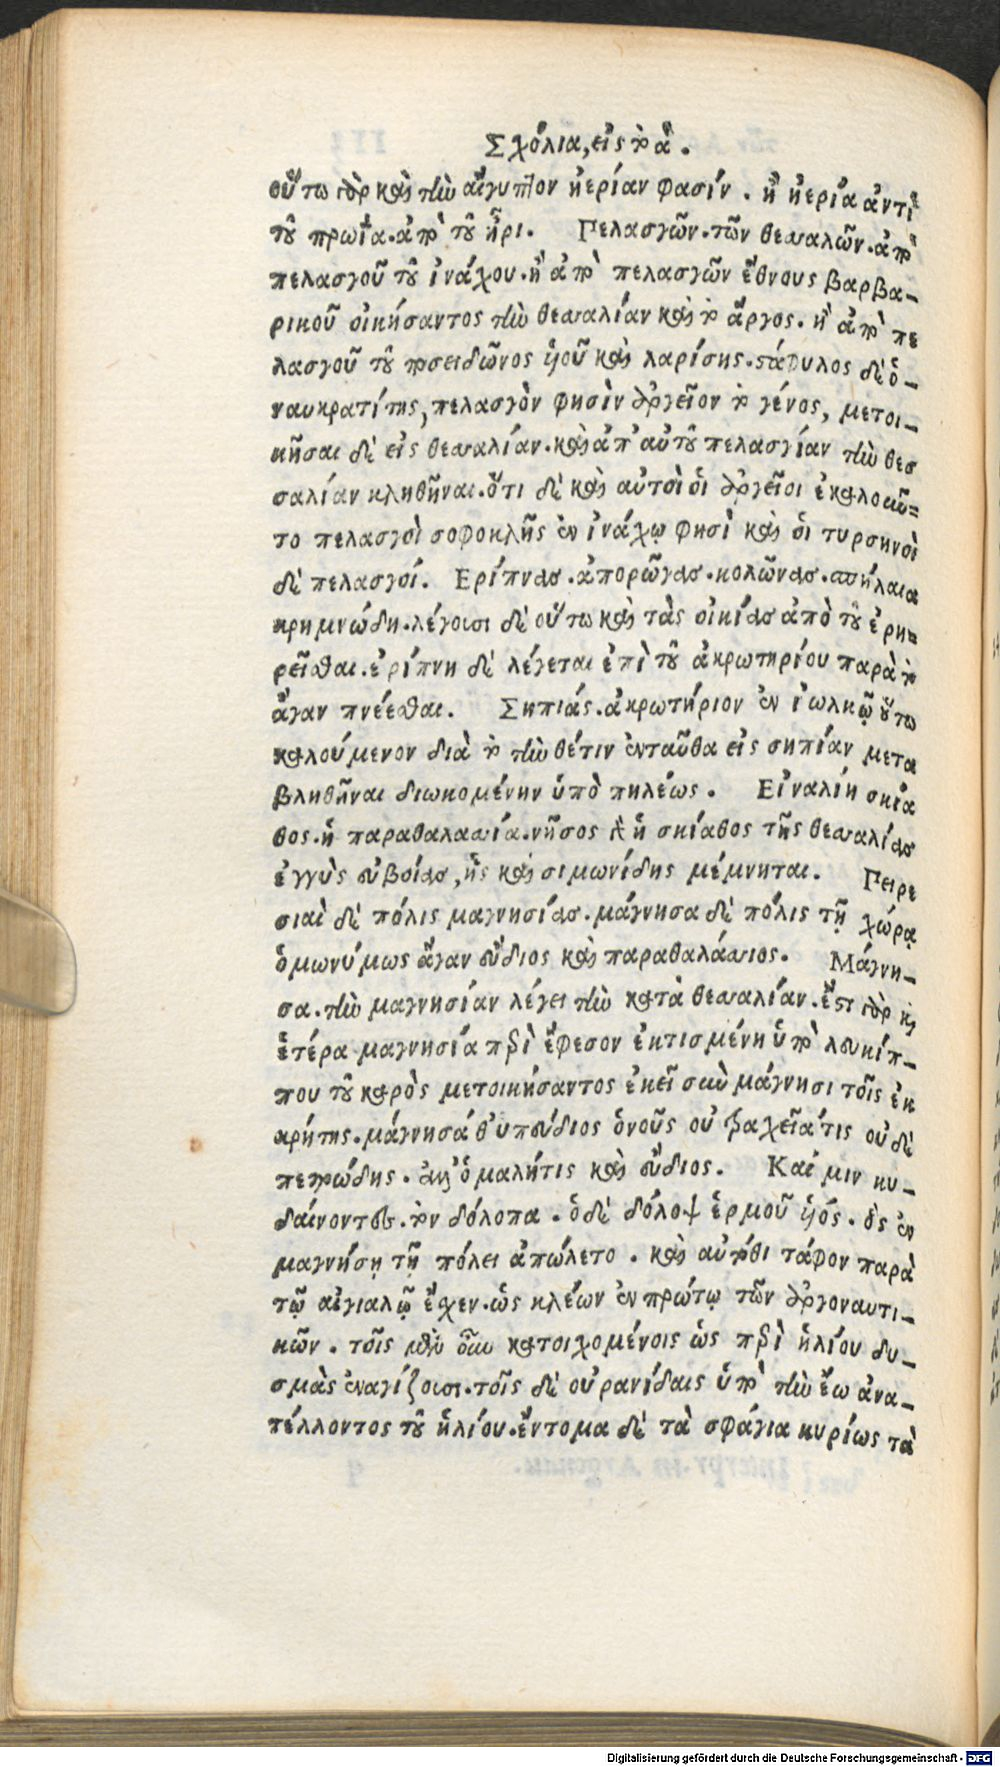 Σχόλια, εἰς τὸ α´.
οὕτω γὰρ καὶ τὴν αἴγυπτον ἠερίαν φασίν. ἢ ἠερία ἀντὶ
τοῦ πρωΐα. ἀπὸ τοῦ ἦρι. Πελασγῶν. τῶν θεσσαλῶν. ἀπὸ
πελασγοῦ τοῦ ἰνάχου. ἢ ἀπὸ πελασγῶν ἔθνους βαρβα-
ρικοῦ οἰκήσαντος τὴν θεσσαλίαν καὶ τὸ ἄργος. ἢ ἀπὸ πε
λασγοῦ τοῦ ποσειδῶνος ὑιοῦ καὶ λαρίσης. στάφυλος δὲ ὁ-
ναυκρατίτης, πελασγὸν φησὶν ἀργεῖον τὸ γένος, μετοι-
κῆσαι δὲ εἰς θεσσαλίαν. καὶ ἀπ' αὐτοῦ πελασγίαν τὴν θεσ
σαλίαν κληθῆναι. ὅτι δὲ καὶ αὐτοὶ ὁι ἀργεῖοι ἐκαλοῦν=
το πελασγοὶ σοφοκλῆς ἐν ἰνάχῳ φησὶ καὶ ὁι τυρσηνοὶ
δὲ πελασγοί. Ερίπνας. ἀπορῶγας. κολῶνας. σπήλαια
κρημνώδη. λέγουσι δὲ οὕτω καὶ τὰς οἰκίας ἀπὸ τοῦ ἐρη=
ρεῖσθαι. ἐρίπνη δὲ λέγεται ἐπὶ τοῦ ἀκρωτηρίου παρὰ τὸ
ἄγαν πνέεσθαι. Σηπιάς. ἀκρωτήριον ἐν ἰωλκῷ οὕτω
καλούμενον διὰ τὸ τὴν θέτιν ἐνταῦθα εἰς σηπίαν μετα
βληθῆναι διωκομένην ὑπὸ πηλέως. Εἰναλίη σκία
θος. ἡ παραθαλασσία. νῆσος δὲ ἡ σκίαθος τῆς θεσσαλίας
ἐγγὺς εὐβοίας, ἧς καὶ σιμωνίδης μέμνηται. Πειρε
σιαὶ δὲ πόλις μαγνησίας. μάγνησα δὲ πόλις τῇ χώρᾳ
ὁμωνύμως ἄγαν εὔδιος καὶ παραθαλάσσιος. Μάγνη-
σα. τὴν μαγνησίαν λέγει τὴν κατὰ θεσσαλίαν. ἔστι γὰρ κ̀
ἑτέρα μαγνησία περὶ ἔφεσον ἐκτισμένη ὑπὸ λευκίπ-
που τοῦ καρὸς μετοικήσαντος ἐκεῖ σὺν μάγνησι τοῖς ἐκ
κρήτης. μάγνησά θ' υπεύδιος ὁνοῦς οὐ τραχεῖά τις οὐδὲ
πετρώδης. ἀλλ' ὁμαλή τις καὶ εὔδιος. Καί μιν κυ-
δαίνοντες. τὸν δόλοπα. ὁ δὲ δόλοψ ἑρμοῦ ὑιός. ὃς ἐν
μαγνήσῃ τῇ πόλει ἀπώλετο. καὶ αὐτόθι τάφον παρὰ
τῷ αἰγιαλῷ ἔχεν. ὡς κλέων ἐν πρώτῳ τῶν ἀργοναυτι-
κῶν. τοῖς μὲν οὖν κατοιχομένοις ὡς περὶ ἡλίου δυ-
σμὰς ἐναγίζουσι. τοῖς δὲ οὐρανίδαις ὑπὸ τὴν ἕω ἀνα-
τέλλοντος τοῦ ἡλίου. ἔντομα δὲ τὰ σφάγια κυρίως τὰ
Digitalisierung gefördert durch die Deutsche Forschungsgemeinschaft - DFG